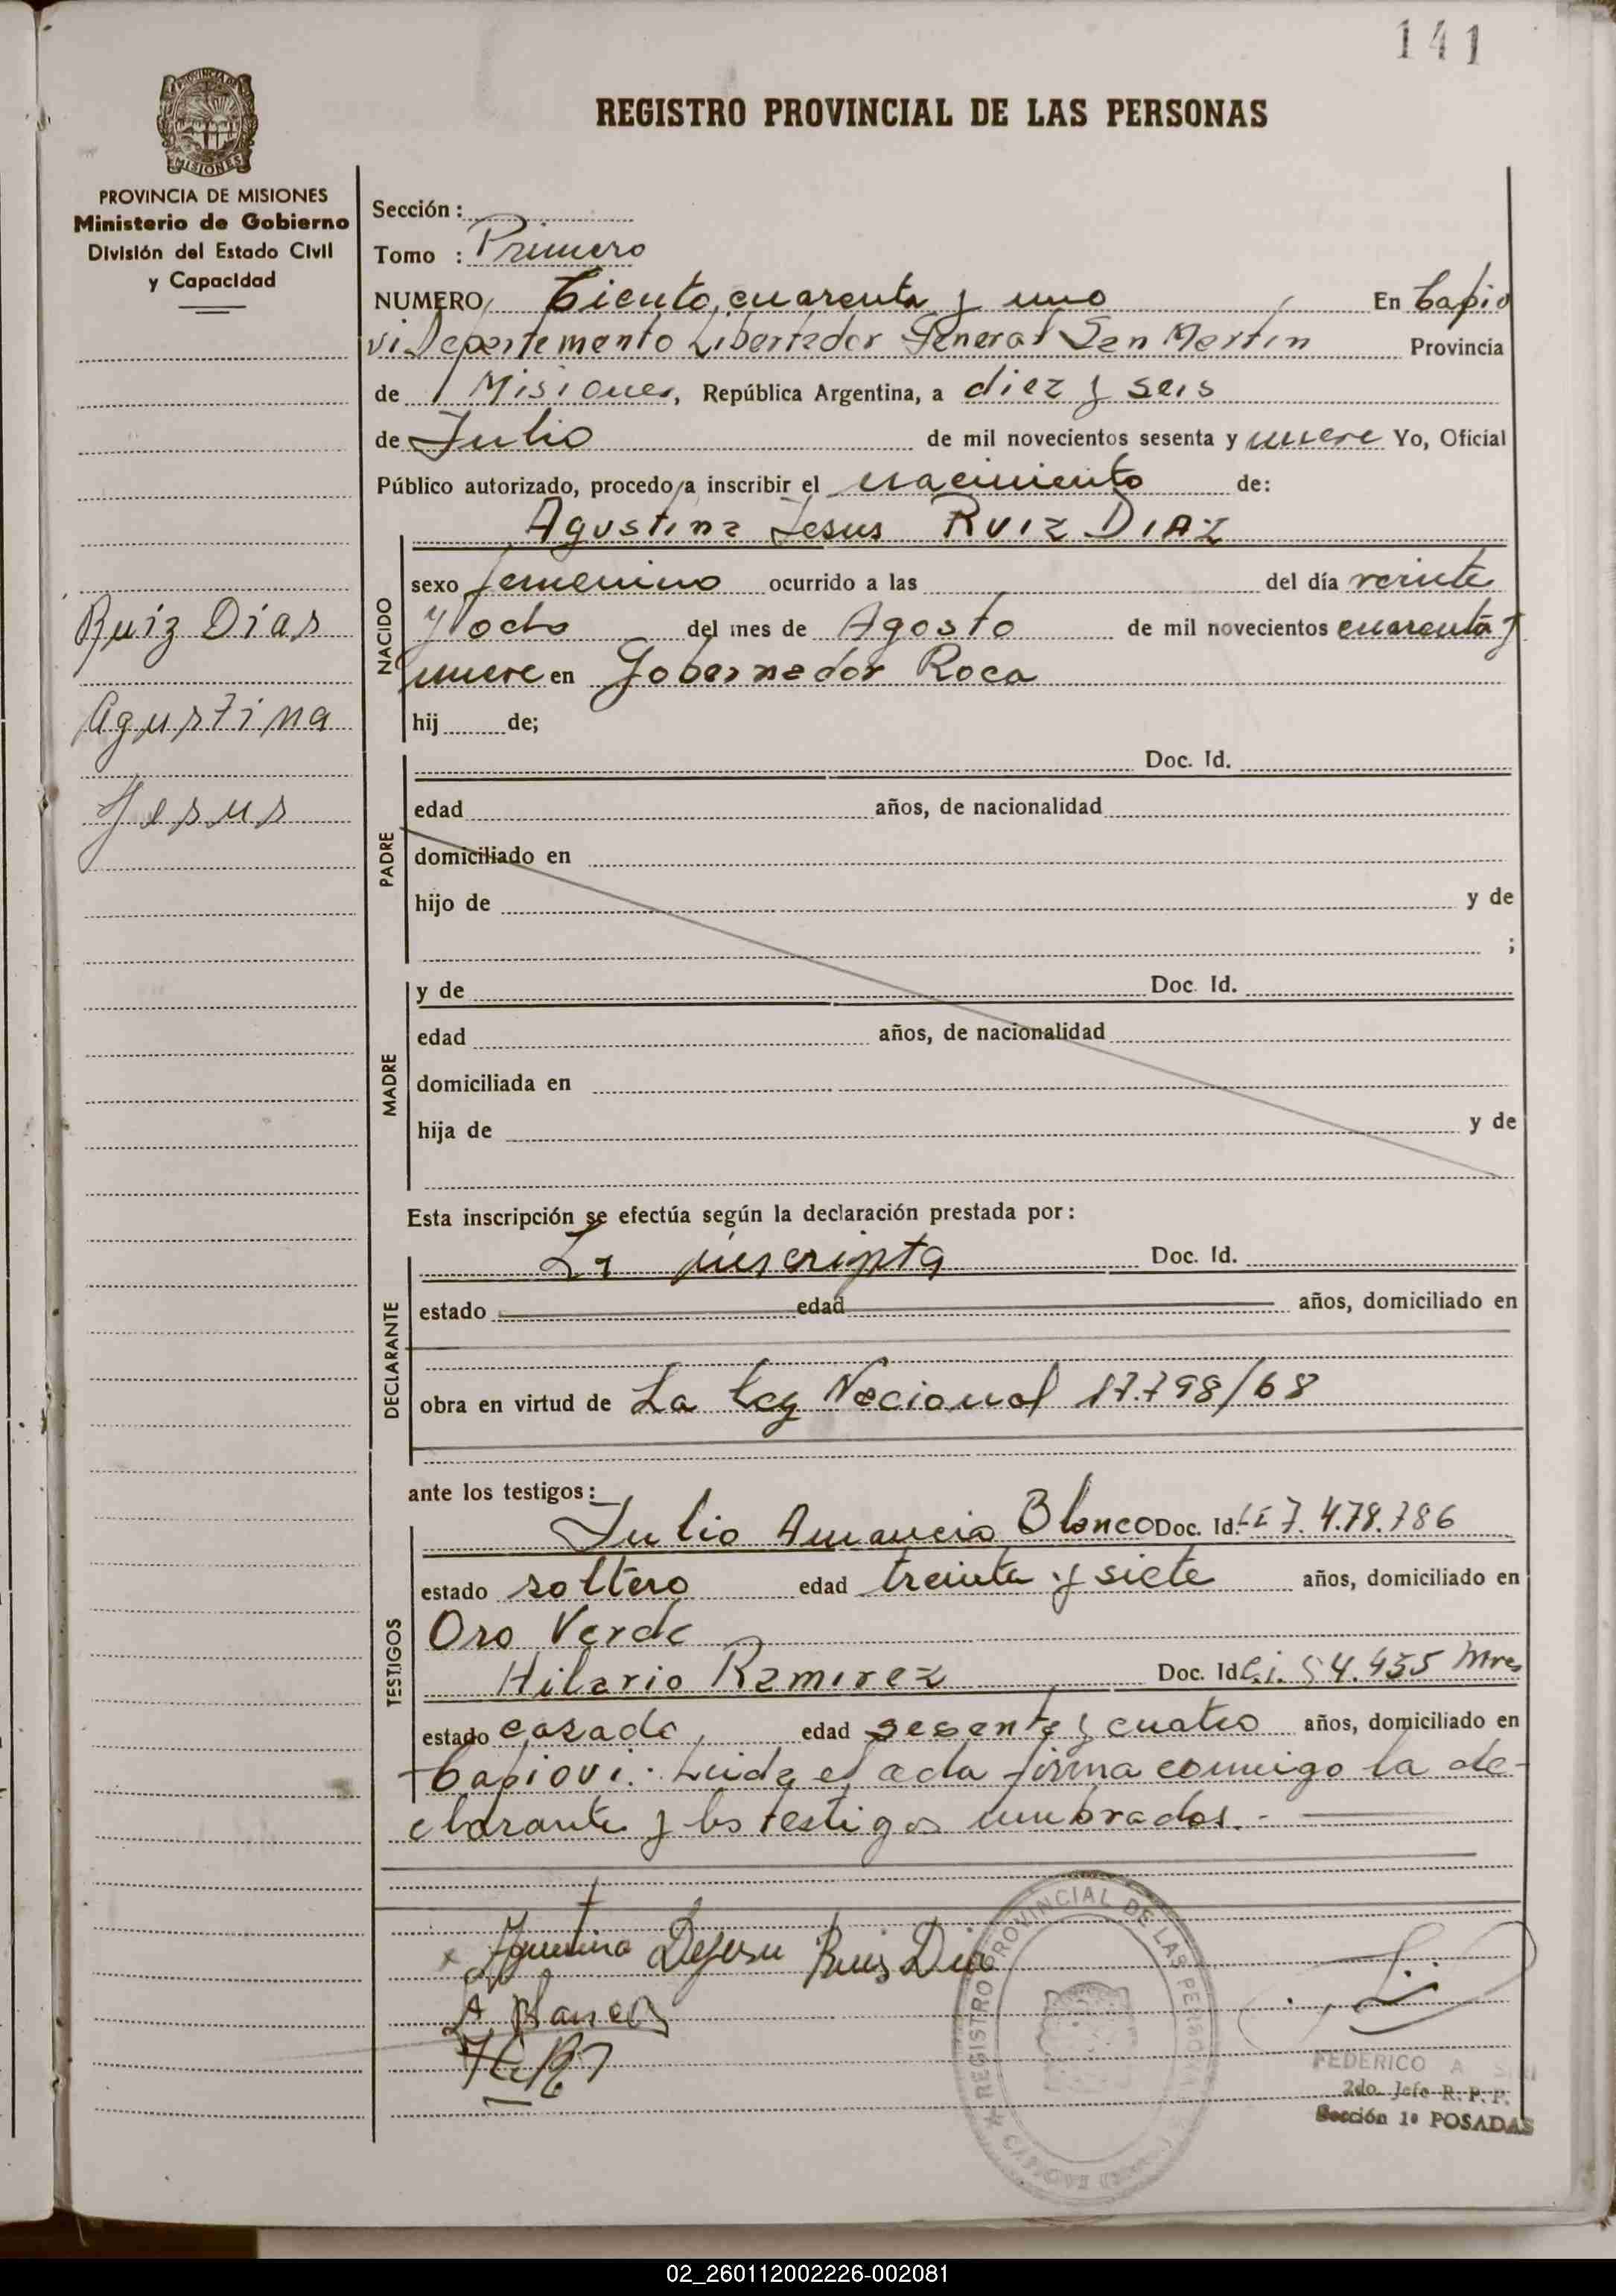 141
REGISTRO PROVINCIAL DE LAS PERSONAS
PROVINCIA DE MISIONES
Ministerio de Gobierno
División del Estado Civil
y Capacidad
Ruiz Dias
Agustina
Jesus
Sección :
Tomo : Primero
NUMERO Ciento cuarenta y uno En Capio
vi Departamento Libertador General San Martin Provincia
de Misiones, República Argentina, a diez y seis
de Julio de mil novecientos sesenta y nueve Yo, Oficial
Público autorizado, procedo a inscribir el nacimiento de:
Agustina Jesus RUIZ DIAZ
NACIDO
sexo femenino ocurrido a las del día veinte
y ocho del mes de Agosto de mil novecientos cuarenta y
nueve en Gobernador Roca
hij de;
PADRE
Doc. Id.
edad años, de nacionalidad
domiciliado en
hijo de y de
;
MADRE
y de Doc. Id.
edad años, de nacionalidad
domiciliada en
hija de y de
Esta inscripción se efectúa según la declaración prestada por:
DECLARANTE
La inscripta Doc. Id.
estado edad años, domiciliado en
obra en virtud de La Ley Nacional 17.798/68
ante los testigos:
TESTIGOS
Julio Amancio Blanco Doc. Id. LE 7.478.786
estado soltero edad treinta y siete años, domiciliado en
Oro Verde
Hilario Ramirez Doc. Id C.i. 54.455 Mnes
estado casado, edad sesenta y cuatro años, domiciliado en
Capiovi.- Leida el acta firma conmigo la de-
clarante y los testigos nombrados.-
x Agustina Dejesu Ruis Dia
REGISTRO PROVINCIAL DE LAS PERSONAS
FEDERICO A
2do. Jefe R. P. P.
Sección 1ª POSADAS
02_260112002226-002081